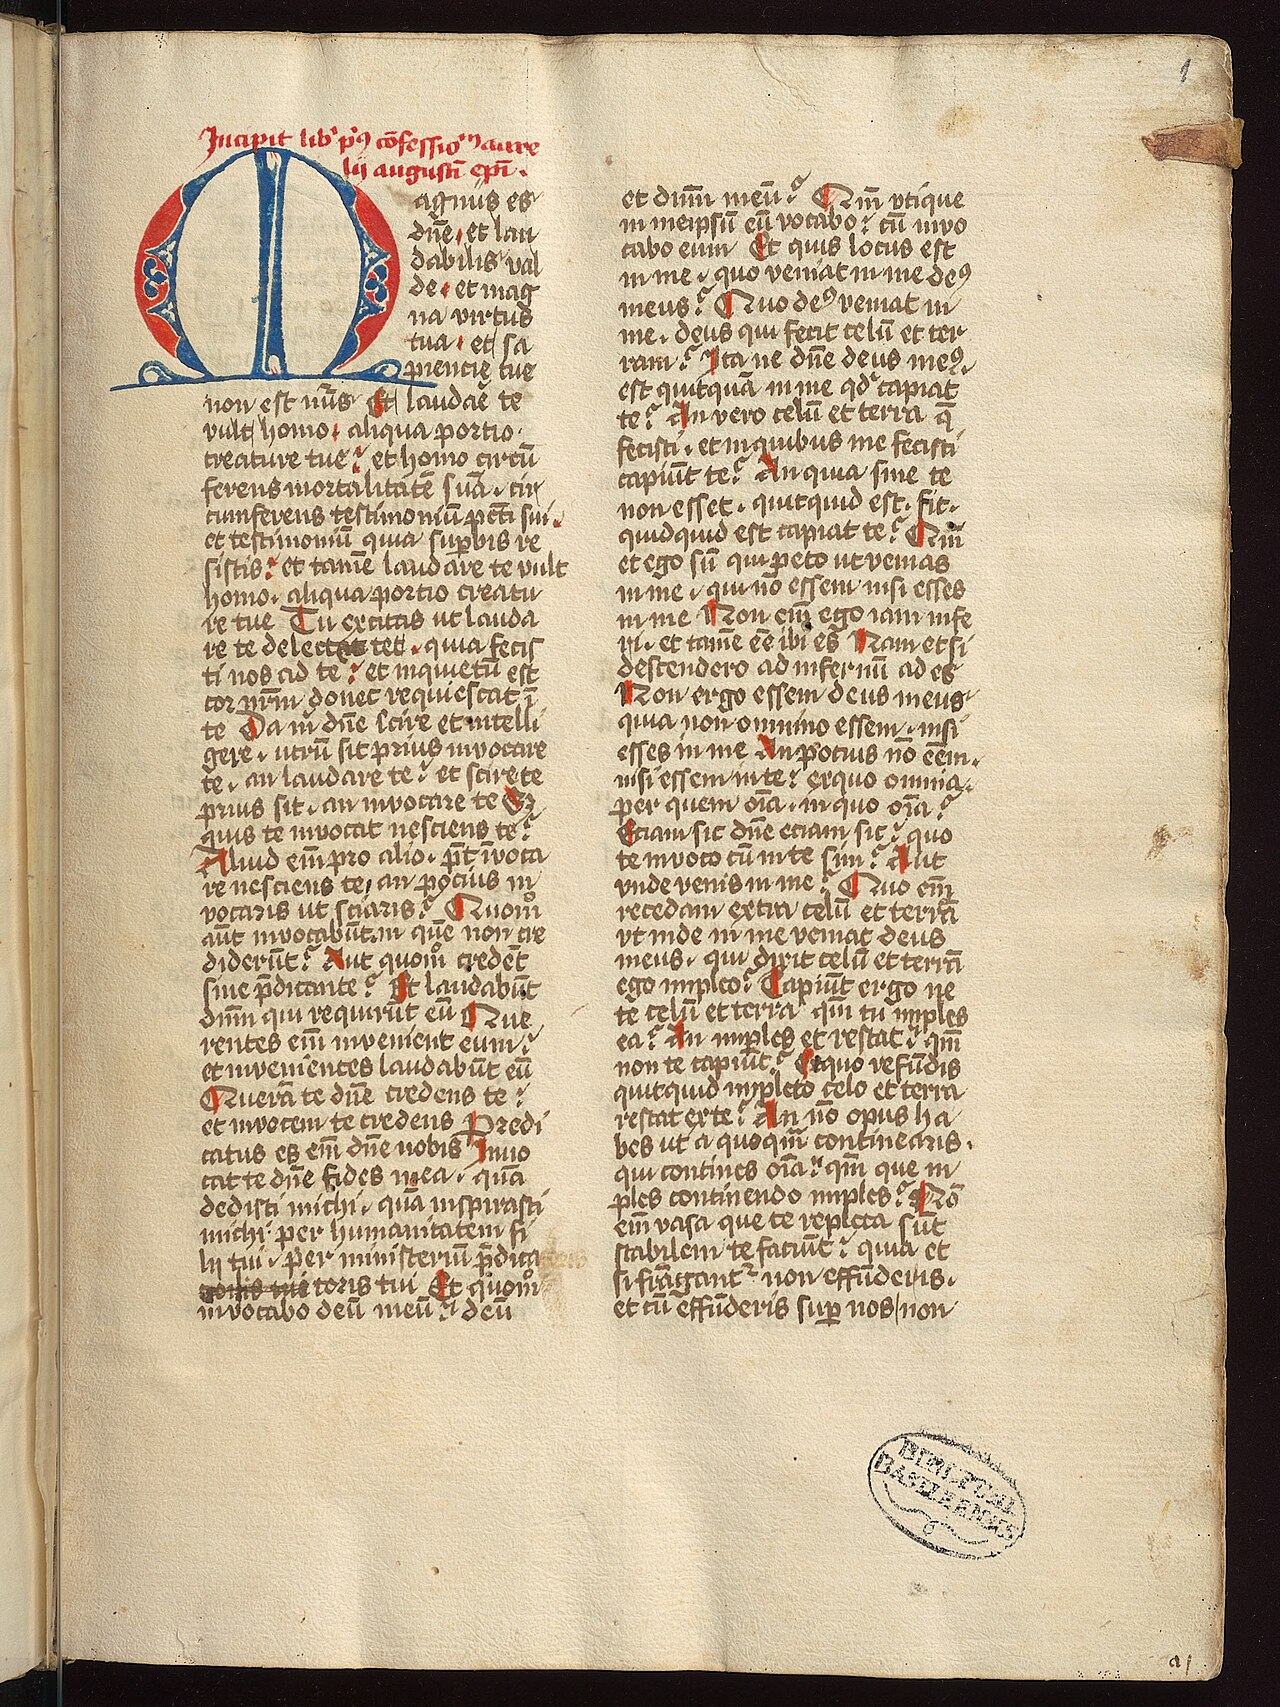 1
Incipit lib' p'9 cōfessionū aure
lii augustī epī.
Magnus es
dn̄e, et lau
dabilis val
de, et mag
na virtus
tua, et sa
piencie tue
non est nūs Et laudāē te
vult homo, aliqua portio
creature tue? et homo circū
ferens mortalitatē suā. cir
cumferens testimoniū pcc̄ti sui.
et testimoniū quia supbis re
sistis? et tamē laudare te vult
homo. aliqua portio creatu
re tue Tu excitas ut lauda
re te delectet. quia fecis
ti nos ad te? et inquietū est
cor nr̄m donec requiescat ī
te Da m̄ dn̄e scire et intelli
gere. utrū sit prius invocare
te. an laudare te? et scire te
prius sit. an invocare te Sz
quis te invocat nesciens te?
Aliud em̄ pro alio. pt̄ īvoca
re nesciens te, an pocius in
vocaris ut sciaris? Quom̊
aūt invocabūt in quē non cre
diderūt? Aut quom̊ credēt
sine p̄dicante? Et laudabūt
dn̄m qui requirūt eū Que
rentes em̄ invenient eum?
et invenientes laudabūt eū
Querā te dn̄e credens te?
et invocem te credens Predi
catus es em̄ dn̄e nobis Invo
cat te dn̄e fides mea. quā
dedisti michi. quā inspirasti
michi per humanitatem fi
lii tui. per ministeriū p̄dica
toris tui Et quom̊
invocabo deū meū? deū
et dn̄m meū? Qm̄ vtique
in meipsū eū vocabo? cū invo
cabo eum Et quis locus est
in me. quo veniat in me de9
meus? Quo de9 veniat in
me. deus qui fecit celū et ter
ram? Ita ne dn̄e deus me9.
est quitquā in me qd̄ capiat
te? An vero celū et terra q̄
fecisti. et in quibus me fecisti
capiūt te? An quia sine te
non esset. quitquid est. fit.
quidquid est capiat te? Qm̄
et ego sū qui peto ut venias
in me. qui nō essem nisi esses
in me Non em̄ ego iam infe
ri. et tamē ēē ibi es Nam et si
descendero ad infernū ad es
Non ergo essem deus meus
quia non omnino essem. nisi
esses in me An pocius nō eēm.
nisi essem in te? ex quo omnia.
per quem oīa. in quo oīa?
Eciam sic dn̄e eciam sic? quo
te invoco cū in te sim? Aut
vnde venis in me? Quo em̄
recedam extra celū et terrā
vt inde in me veniat deus
meus. qui dixit celū et terrā
ego impleo? Capiūt ergo ne
te celū et terra qm̄ tu imples
ea? An imples et restat? qm̄
non te capiūt? Et quo refūdis
quitquid impleto celo et terra
restat ex te? An nō opus ha
bes ut a quoqm̄ continearis.
qui contines oīa? qm̄ que im
ples continendo imples? Nō
em̄ vasa que te repleta sūt
stabilem te faciūt? quia et
si frāgant² non effūderis.
et cū effūderis sup nos non
BIBL. PUBL.
BASILEENSIS
a1